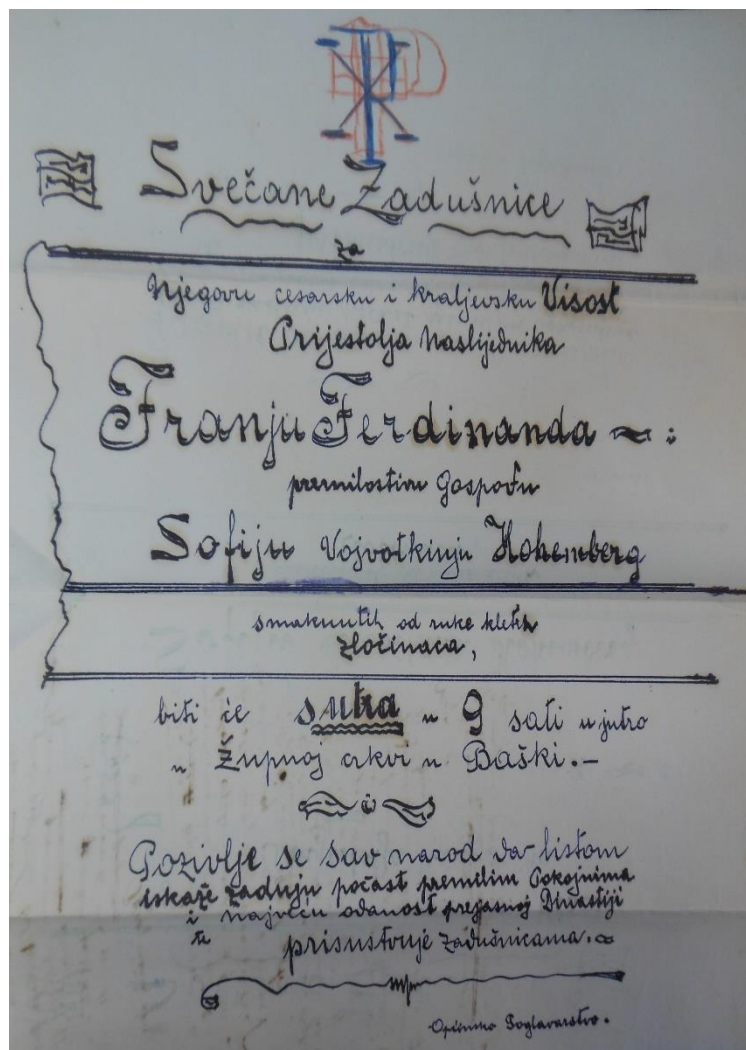 Svečane Zadušnice
za
Njegovu cesarsku i kraljevsku Visost
Prijestolja Naslijednika
Franju Ferdinanda
premilostivu Gospođu
Sofiju Vojvotkinju Hohemberg
smaknutih od ruke kletih
zločinaca,
biti će sutra u 9 sati u jutro
u Župnoj crkvi u Baški.-
Pozivlje se sav narod da listom
iskaže zadnju počast premilim Pokojnima
i najveću odanost prejasnoj Dinastiji
te prisustvuje Zadušnicama.
Općinsko Poglavarstvo.